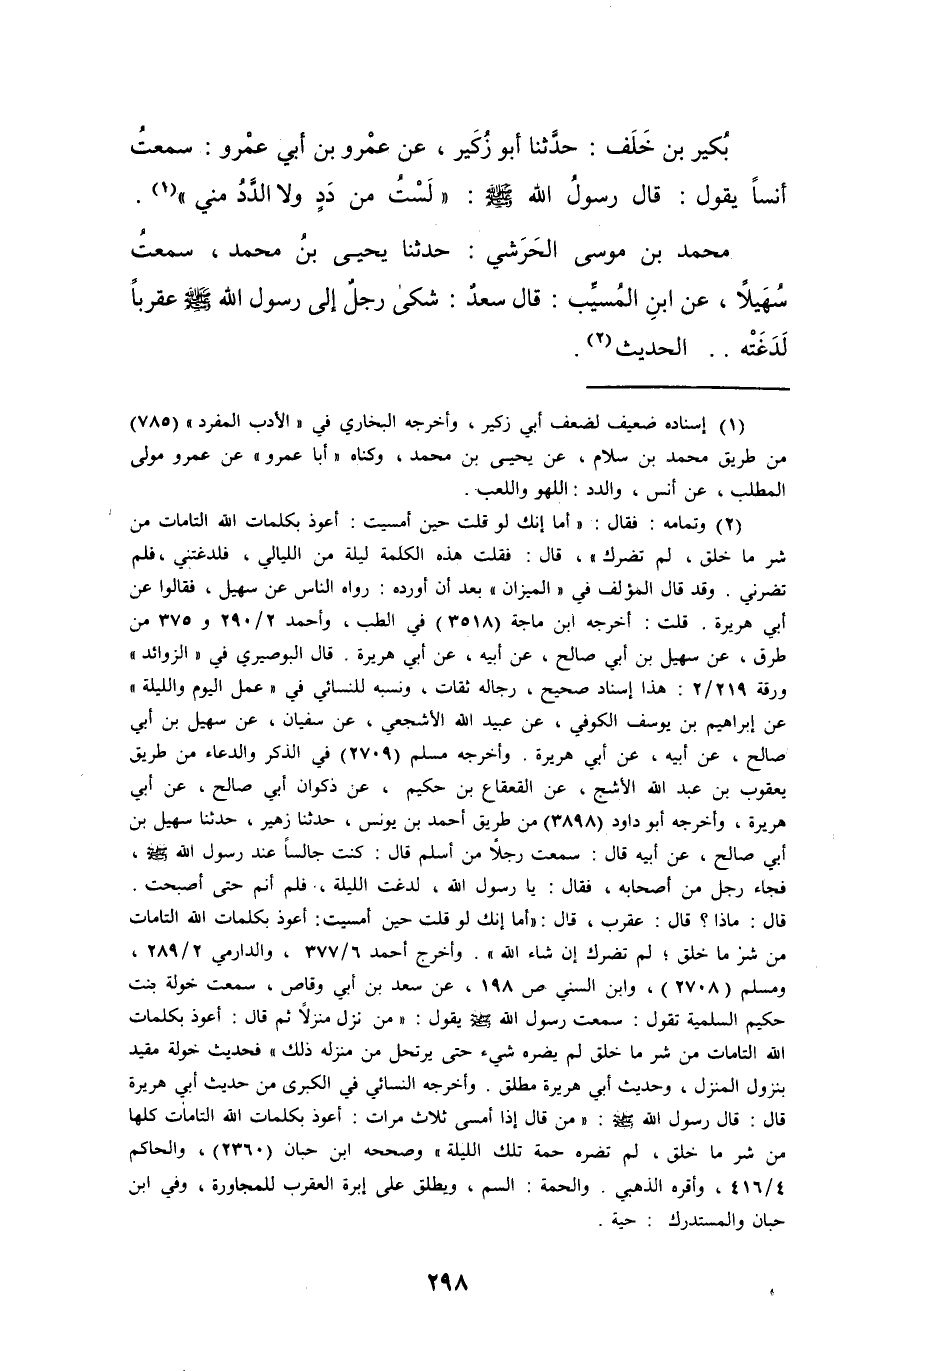 بُكير بن خَلَف : حدَّثنا أبو زُكَير ، عن عمْرو بن أبي عمْرو : سمعتُ
أنساً يقول : قال رسولُ الله ﷺ : « لَسْتُ من دَدٍ ولا الدَّدُ مني »(١) .
محمد بن موسى الحَرَشي : حدثنا يحيى بنُ محمد ، سمعتُ
سُهَيلاً ، عن ابنِ المُسيِّب : قال سعدٌ : شكىٰ رجلٌ إلى رسول الله ﷺ عقرباً
لَدَغَتْه . . الحديث(٢) .
(١) إسناده ضعيف لضعف أبي زكير ، وأخرجه البخاري في « الأدب المفرد » (٧٨٥)
من طريق محمد بن سلام ، عن يحيى بن محمد ، وكناه « أبا عمرو » عن عمرو مولى
المطلب ، عن أنس ، والدد : اللهو واللعب .
(٢) وتمامه : فقال : « أما إنك لو قلت حين أمسيت : أعوذ بكلمات الله التامات من
شر ما خلق ، لم تضرك » ، قال : فقلت هذه الكلمة ليلة من الليالي ، فلدغتني ، فلم
تضرني . وقد قال المؤلف في « الميزان » بعد أن أورده : رواه الناس عن سهيل ، فقالوا عن
أبي هريرة . قلت : أخرجه ابن ماجة (٣٥١٨) في الطب ، وأحمد ٢/ ٢٩٠ و ٣٧٥ من
طرق ، عن سهيل بن أبي صالح ، عن أبيه ، عن أبي هريرة . قال البوصيري في « الزوائد »
ورقة ٢/٢١٩ : هذا إسناد صحيح ، رجاله ثقات ، ونسبه للنسائي في « عمل اليوم والليلة »
عن إبراهيم بن يوسف الكوفي ، عن عبيد الله الأشجعي ، عن سفيان ، عن سهيل بن أبي
صالح ، عن أبيه ، عن أبي هريرة . وأخرجه مسلم (٢٧٠٩) في الذكر والدعاء من طريق
يعقوب بن عبد الله الأشج ، عن القعقاع بن حكيم ، عن ذكوان أبي صالح ، عن أبي
هريرة ، وأخرجه أبو داود (٣٨٩٨) من طريق أحمد بن يونس ، حدثنا زهير ، حدثنا سهيل بن
أبي صالح ، عن أبيه قال : سمعت رجلاً من أسلم قال : كنت جالساً عند رسول الله ﷺ ،
فجاء رجل من أصحابه ، فقال : يا رسول الله ، لدغت الليلة ، فلم أنم حتى أصبحت .
قال : ماذا ؟ قال : عقرب ، قال : «أما إنك لو قلت حين أمسيت : أعوذ بكلمات الله التامات
من شر ما خلق ؛ لم تضرك إن شاء الله » . وأخرج أحمد ٦/ ٣٧٧ ، والدارمي ٢/ ٢٨٩ ،
ومسلم (٢٧٠٨ ) ، وابن السني ص ١٩٨ ، عن سعد بن أبي وقاص ، سمعت خولة بنت
حكيم السلمية تقول : سمعت رسول الله ﷺ يقول : « من نزل منزلاً ثم قال : أعوذ بكلمات
الله التامات من شر ما خلق لم يضره شيء حتى يرتحل من منزله ذلك » فحديث خولة مقيد
بنزول المنزل ، وحديث أبي هريرة مطلق . وأخرجه النسائي في الكبرى من حديث أبي هريرة
قال : قال رسول الله ﷺ : « من قال إذا أمسى ثلاث مرات : أعوذ بكلمات الله التامات كلها
من شر ما خلق ، لم تضره حمة تلك الليلة » وصححه ابن حبان (٢٣٦٠) ، والحاكم
٤/ ٤١٦ ، وأقره الذهبي . والحمة : السم ، ويطلق على إبرة العقرب للمجاورة ، وفي ابن
حبان والمستدرك : حية .
٢٩٨